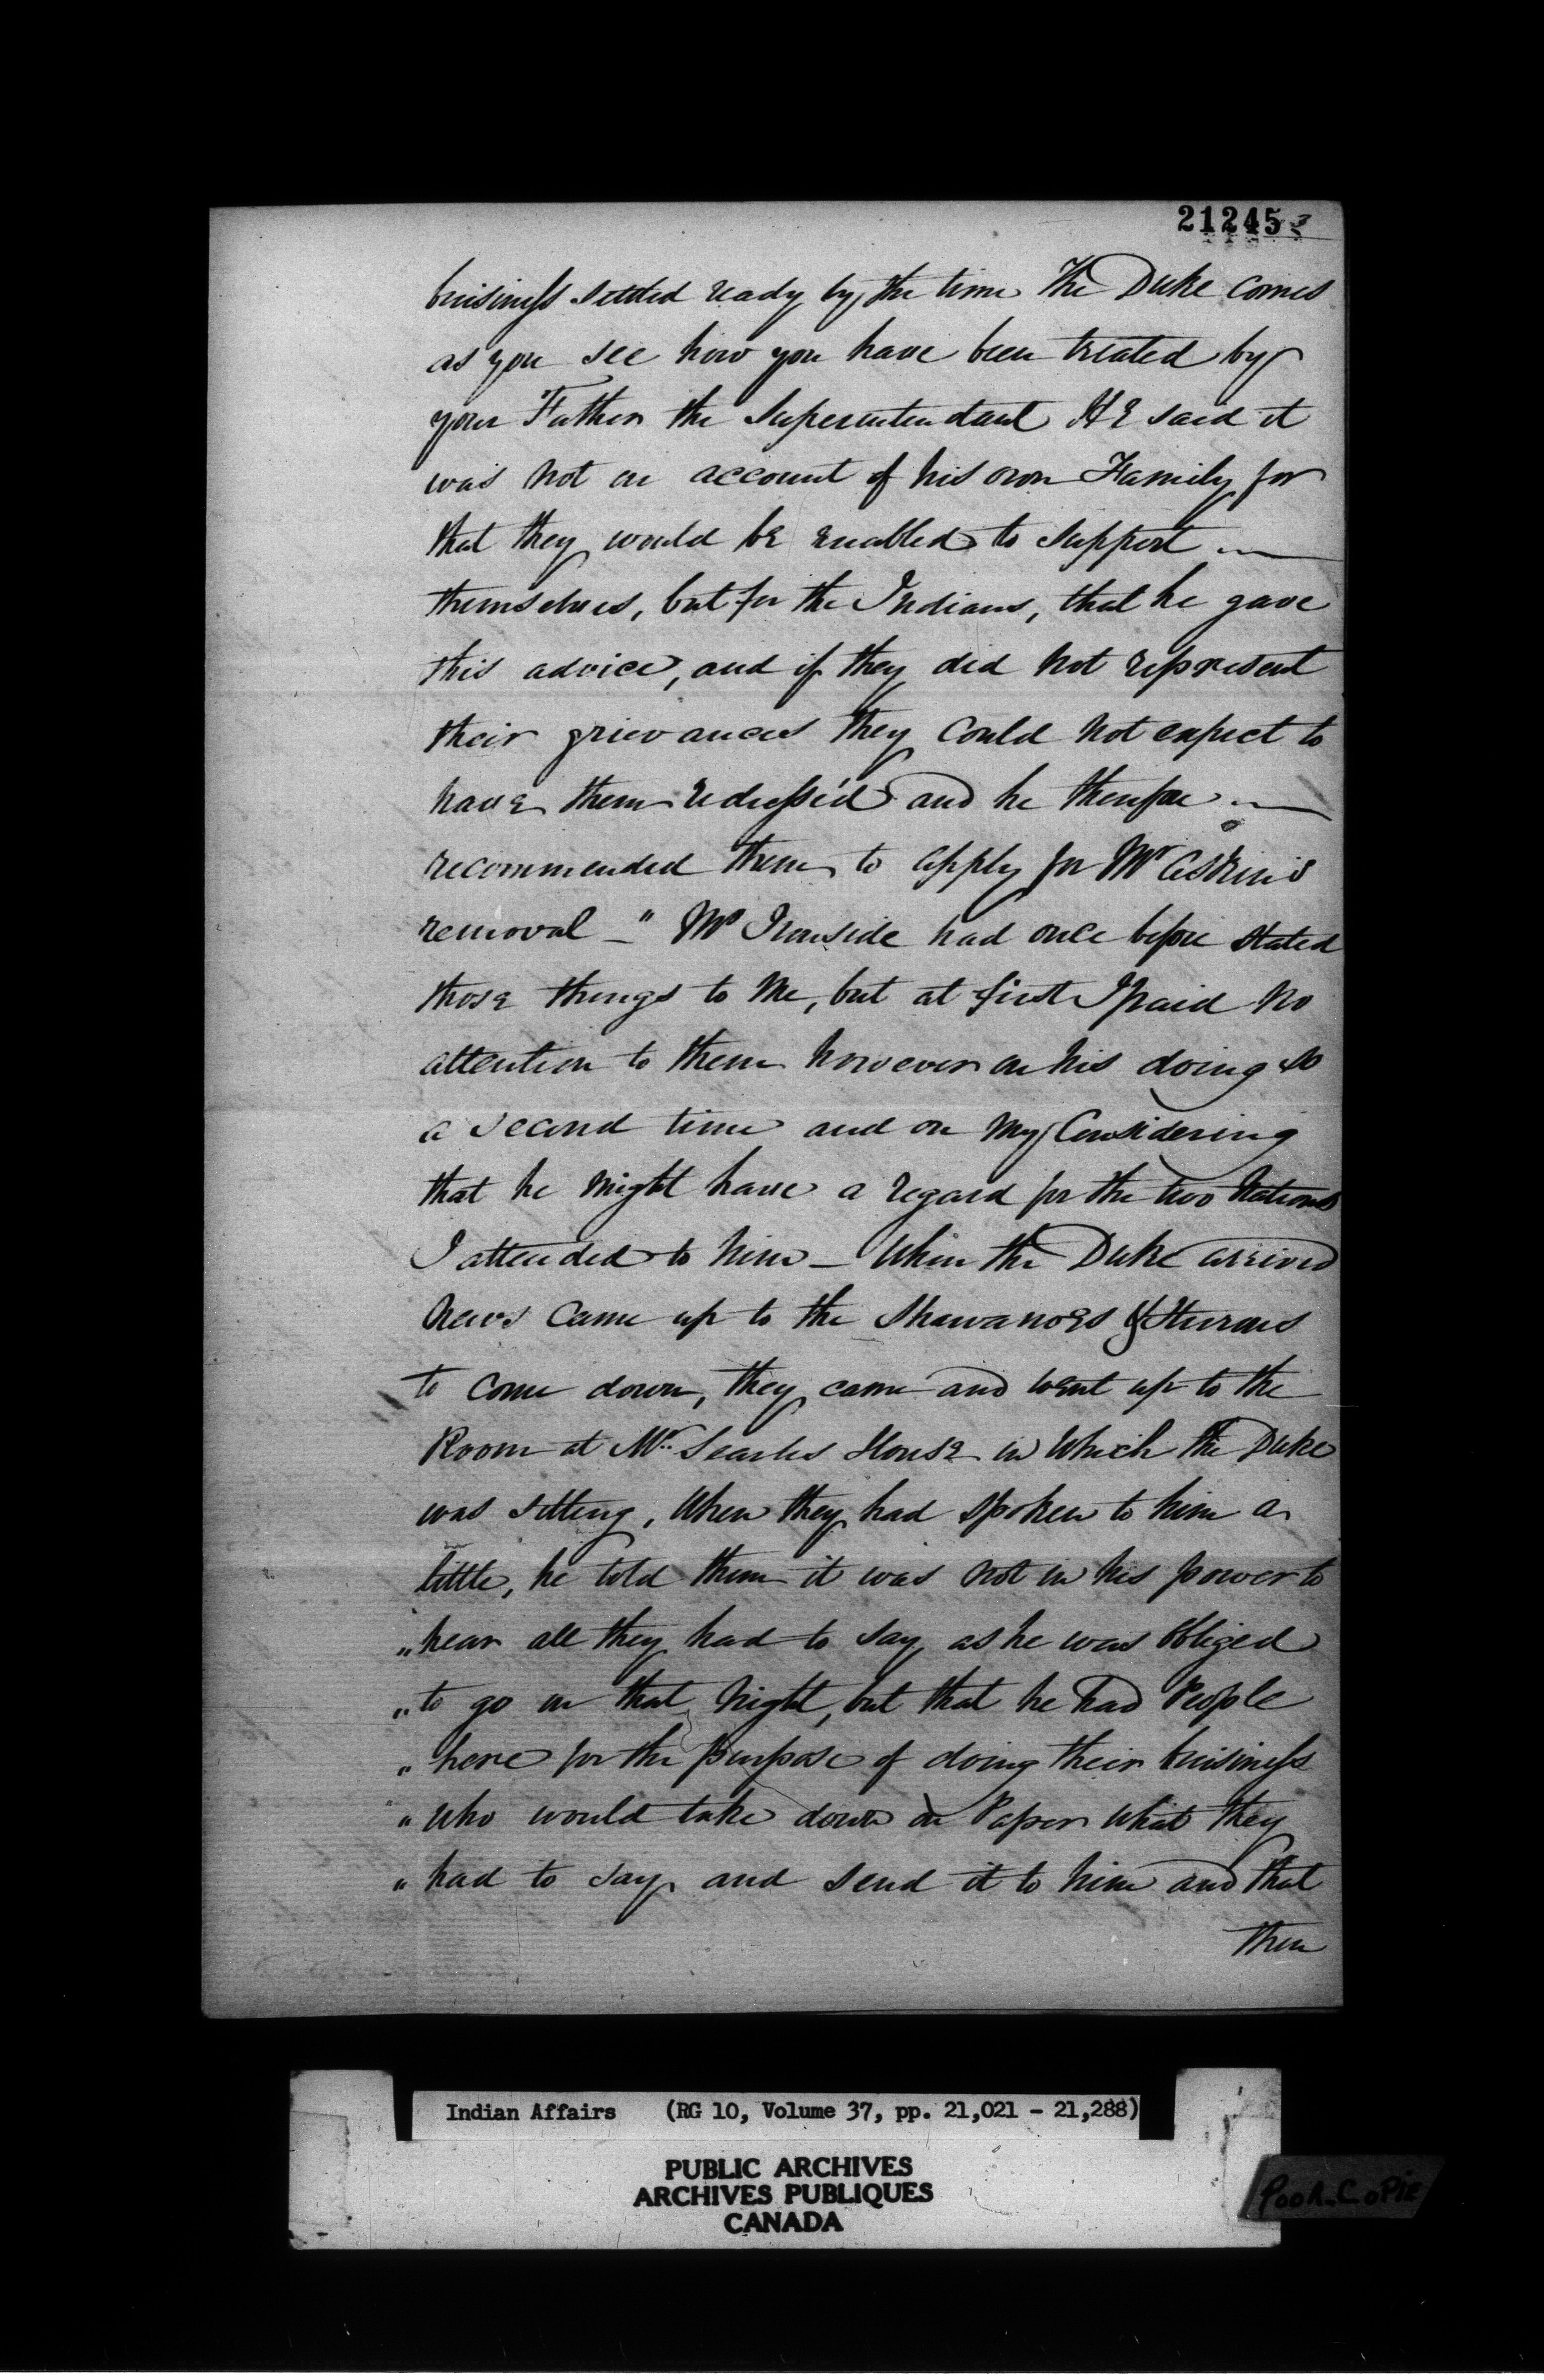 21245
buisiness settled ready by the time The Duke comes
as you see how you have been treated by
your Father the Superintendant HE said it
was not on account of his own Family for
that they would be enabled to support
themselves, but for the Indians, that he gave
this advice, and if they did not represent
their grievances they Could not expect to
have them redress'd and he therefore
recommended them to apply for Mr Askin's
removal — " Mr Ironside had once before stated
those things to Me, but at first I paid No
attention to them however on his doing so
a second time and on My Considering
that he might have a regard for the two Nations
I attended to him — When the Duke arrived
News Came up to the Shawanoes & Hurons
to come down, they came and went up to the
Room at Mr. Searles House in Which the Duke
was sitting, When they had spoken to him a
little, he told them it was not in his power to
" hear all they had to say, as he was Obliged
" to go on that Night, but that he had People
" here for the purpose of doing their buisiness
" Who would take down on Paper What they
" had to say and send it to him and that
then
Indian Affairs (RG 10, Volume 37, pp. 21,021 - 21,288)
PUBLIC ARCHIVES
ARCHIVES PUBLIQUES
CANADA
Poor Copie